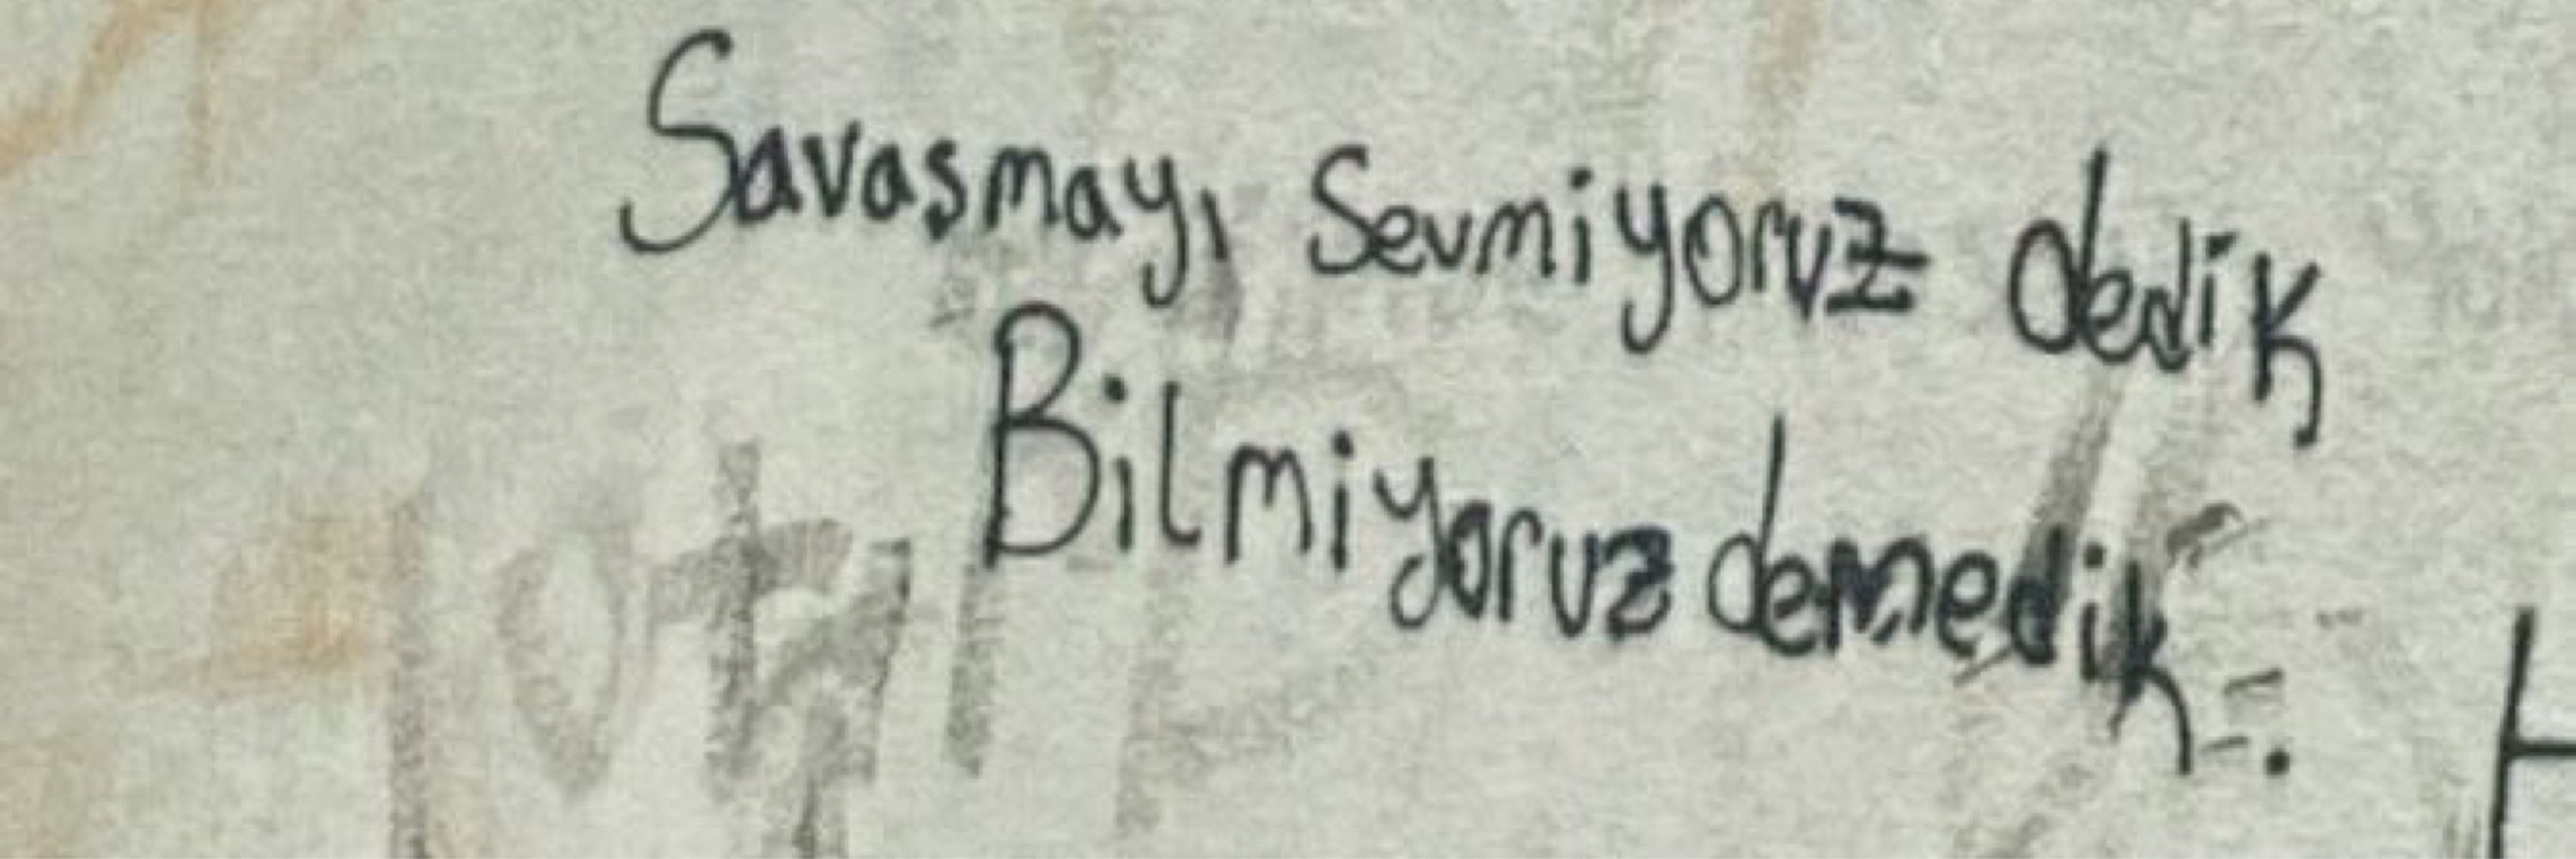 Savaşmayı Sevmiyoruz dedik
Bilmiyoruz demedik.